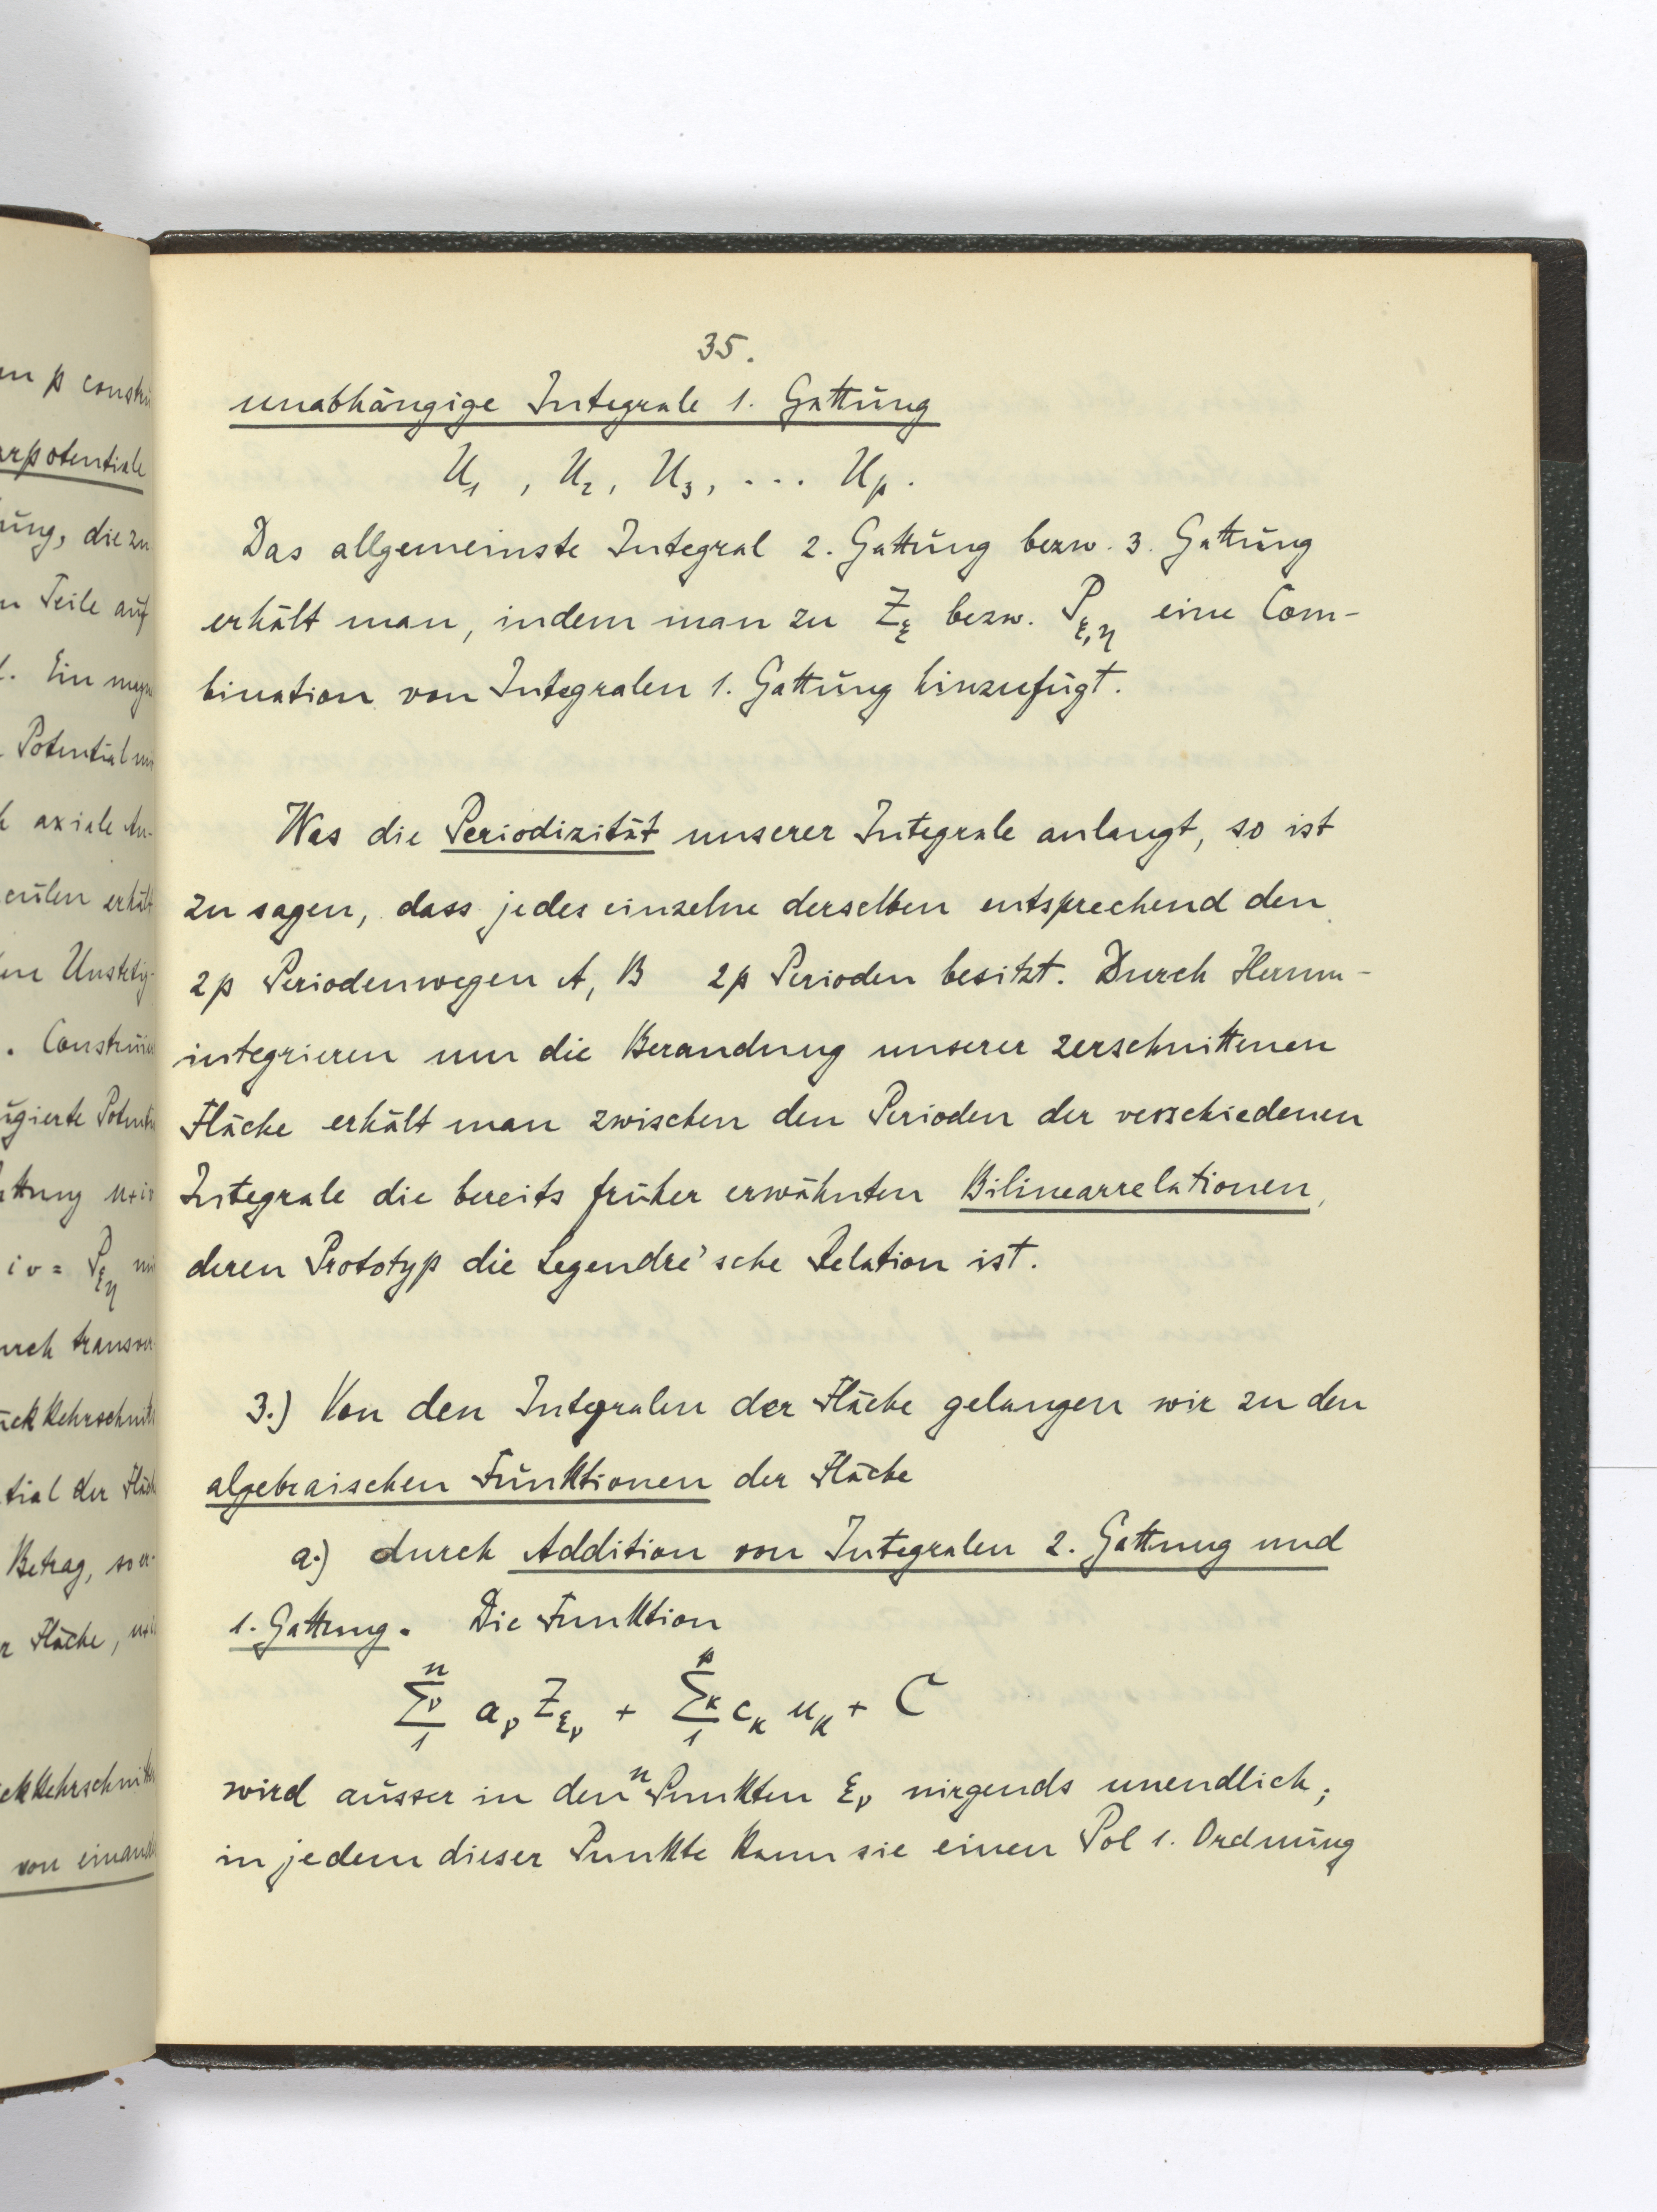 en p constru
arpotentiale
ung, die zu
n Teile auf
Potential
axiale An-
erhält
Unstetig-
. Construie
ugierte Potenti
attung u+iv
iv = P_{ξη}
urch transver
ückkehrschnitt
tial der Fläch
Betrag, so er-
r Fläche, u+i
ckkehrschnitt
von einand
35.
unabhängige Integrale 1. Gattung
U₁ , U₂, U₃, . . . U_p.
Das allgemeinste Integral 2. Gattung bezw. 3. Gattung
erhält man, indem man zu Z_ξ bezw. P_{ξ,η} eine Com-
bination von Integralen 1. Gattung hinzufügt.
Was die Periodizität unserer Integrale anlangt, so ist
zu sagen, dass jedes einzelne derselben entsprechend den
2p Periodenwegen A, B 2p Perioden besitzt. Durch Herum-
integrieren um die Berandung unserer zerschnittenen
Fläche erhält man zwischen den Perioden der verschiedenen
Integrale die bereits früher erwähnten Bilinearrelationen,
deren Prototyp die Legendre'sche Relation ist.
3.) Von den Integralen der Fläche gelangen wir zu den
algebraischen Funktionen der Fläche
a.) durch Addition von Integralen 2. Gattung und
1. Gattung. Die Funktion
n∑ν1 a_ν Z_{ξ_ν} + p∑κ1 c_κ u_κ + C
wird ausser in den n Punkten ξ_ν nirgends unendlich;
in jedem dieser Punkte kann sie einen Pol 1. Ordnung